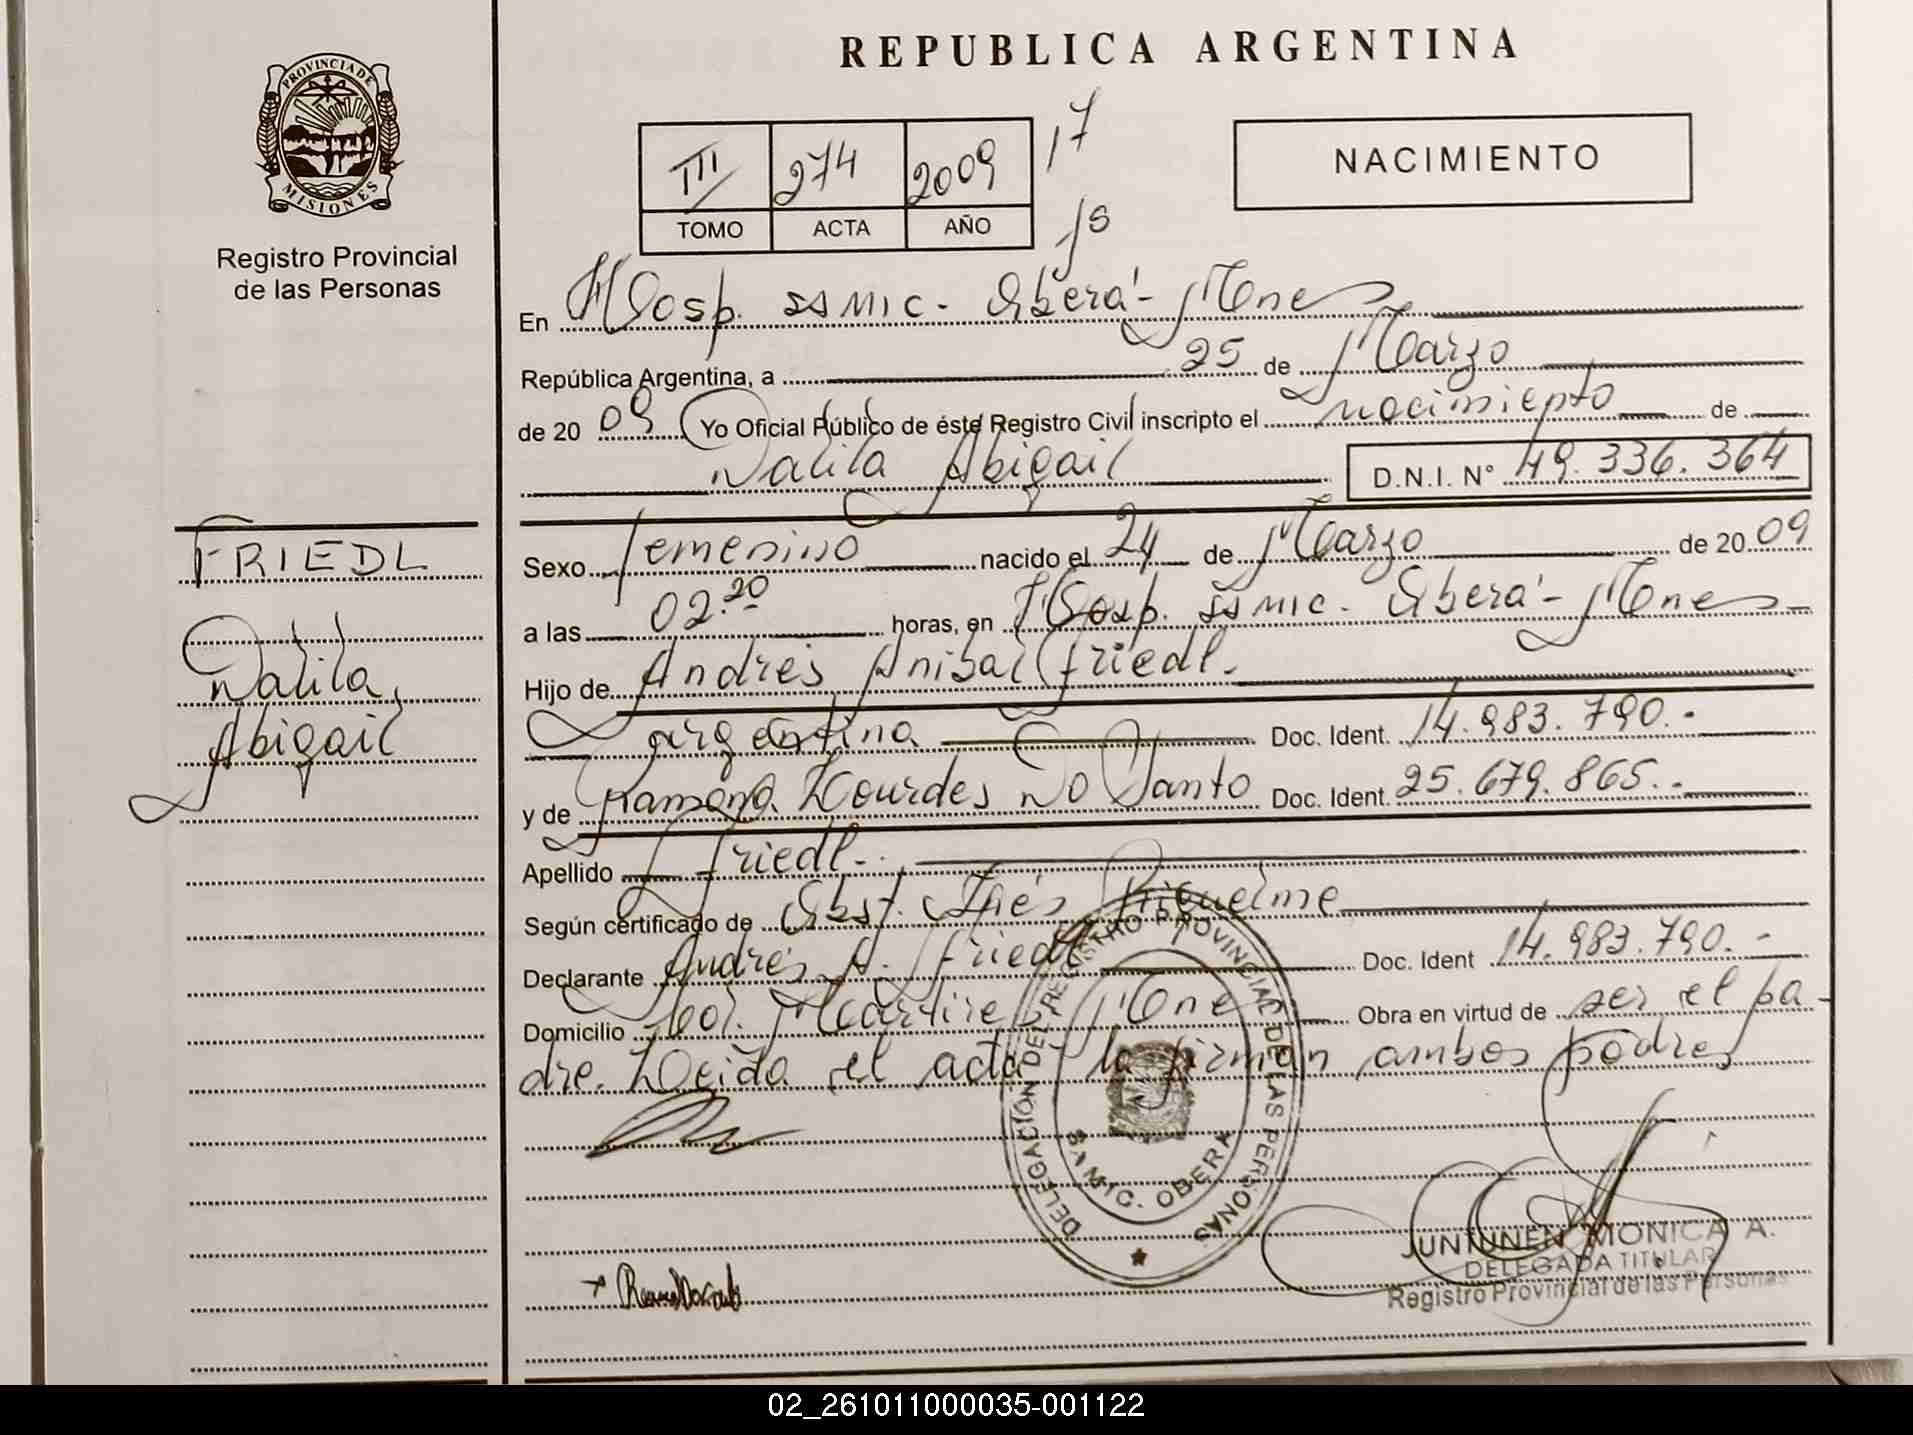 REPUBLICA ARGENTINA
PROVINCIA DE
MISIONES
Registro Provincial
de las Personas
III 274 2009 17
TOMO ACTA AÑO
NACIMIENTO
En Hosp. SSMIC. Oberá - Mnes
República Argentina, a 25 de Marzo
de 20 09 Yo Oficial Público de éste Registro Civil inscripto el nacimiento de
Dalila Abigail D.N.I. N° 49.336.364
FRIEDL
Dalila
Abigail
Sexo femenino nacido el 24 de Marzo de 20 09
a las 02.20 horas, en Hosp. SSMIC. Oberá - Mnes
Hijo de Andrés Anibal Friedl.
argentina Doc. Ident. 14.983.790.-
y de Ramona Lourdes Do Santo Doc. Ident. 25.679.865.-
Apellido Friedl.
Según certificado de Obst. Inés Riquelme
Declarante Andrés A. Friedl Doc. Ident 14.983.790.-
Domicilio Col. Mártires Mnes Obra en virtud de ser el pa-
dre. Leida el acta la firman ambos padres
DELEGACIÓN DEL REGISTRO PROVINCIAL DE LAS PERSONAS
SAMIC. OBERA
JUNTUNEN MONICA A.
DELEGADA TITULAR
Registro Provincial de las Personas
02_261011000035-001122